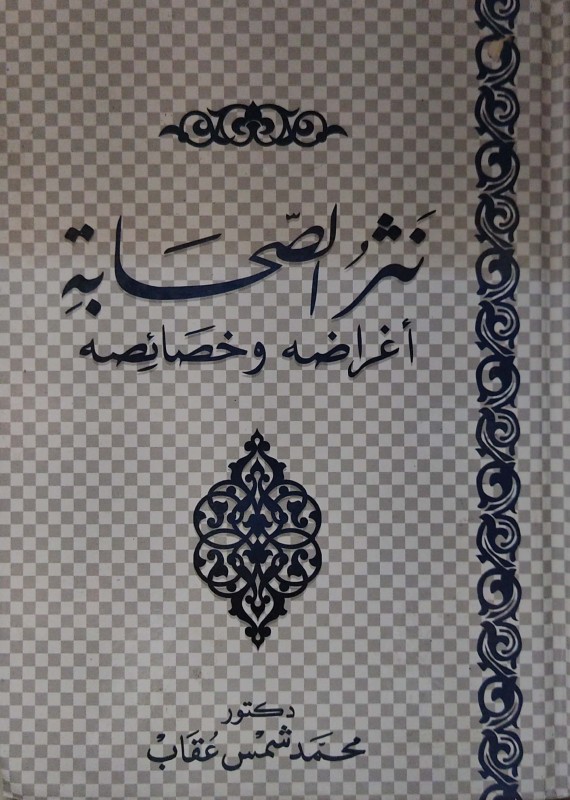 نَثرُ الصّحابةِ
أغراضه وخصَائِصه
دكتور
محمد شمْس عُقَابْ